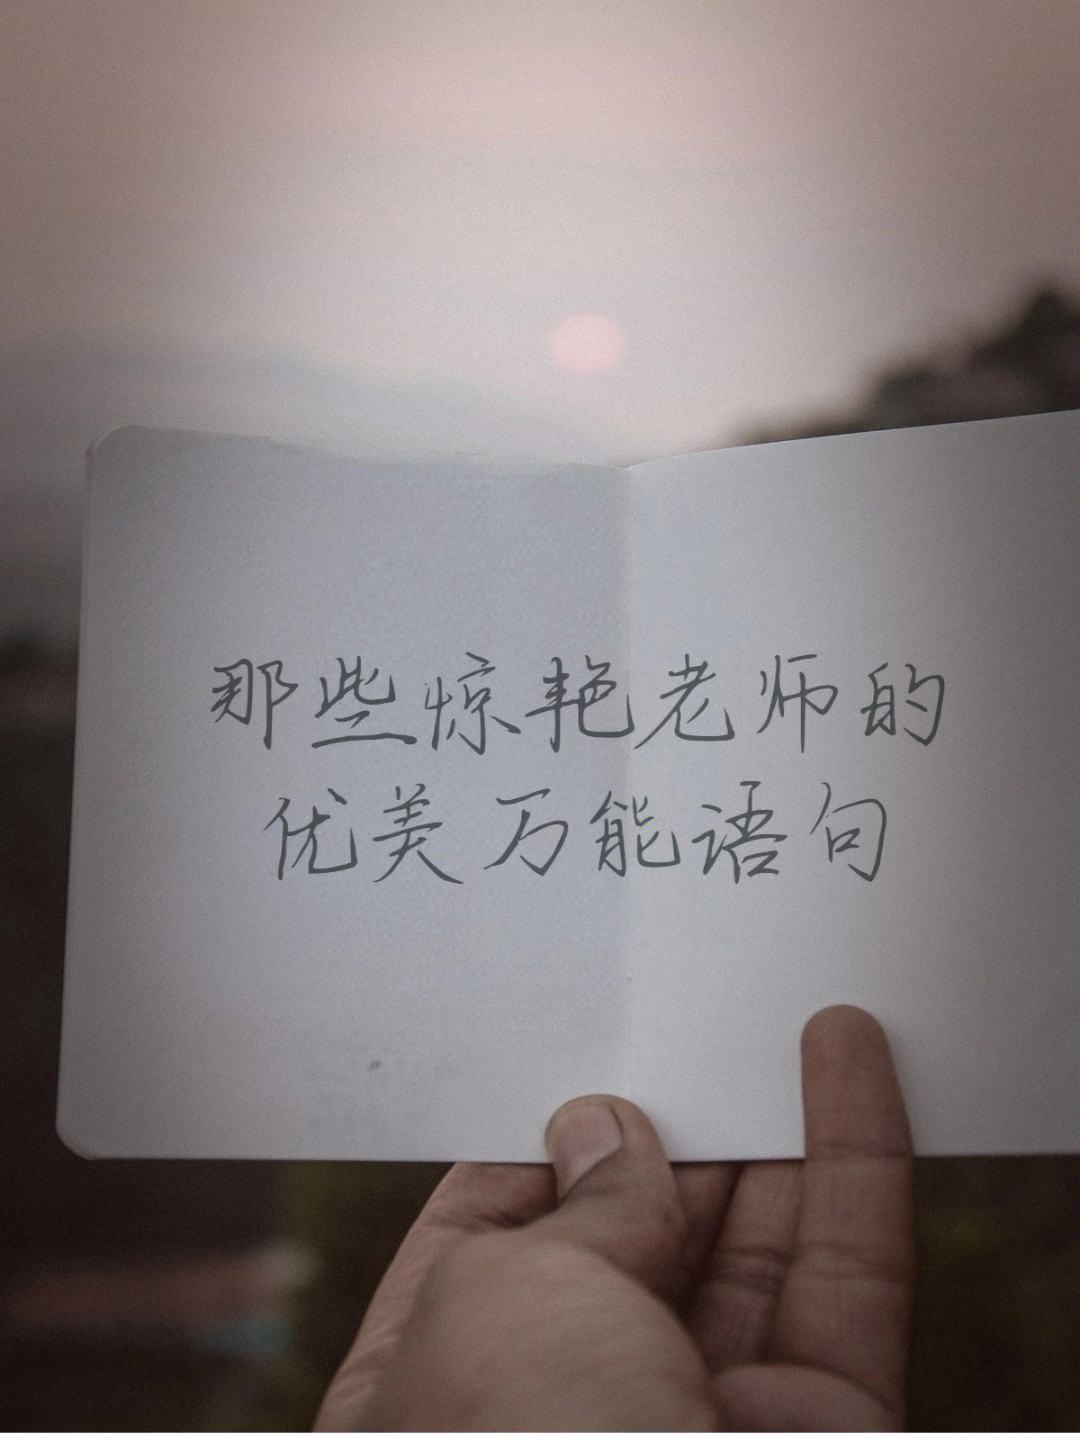 那些惊艳老师的
优美万能语句